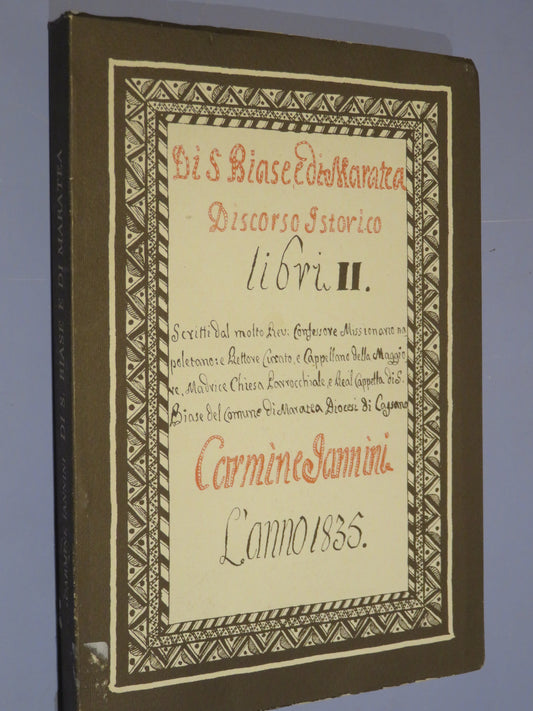 Di S. Biase, e di Maratea
Discorso Istorico
libri II.
Scritti dal molto Rev: Confessore Missionario na
poletano: e Rettore Curato, e Cappellano della Maggio
re, Madrice Chiesa Parrocchiale, e Real Cappella di S.
Biase del Comune di Maratea Diocesi di Cassano
Carmine Iannini
L'anno 1835.
CARMINE IANNINI DI S. BIASE E DI MARATEA